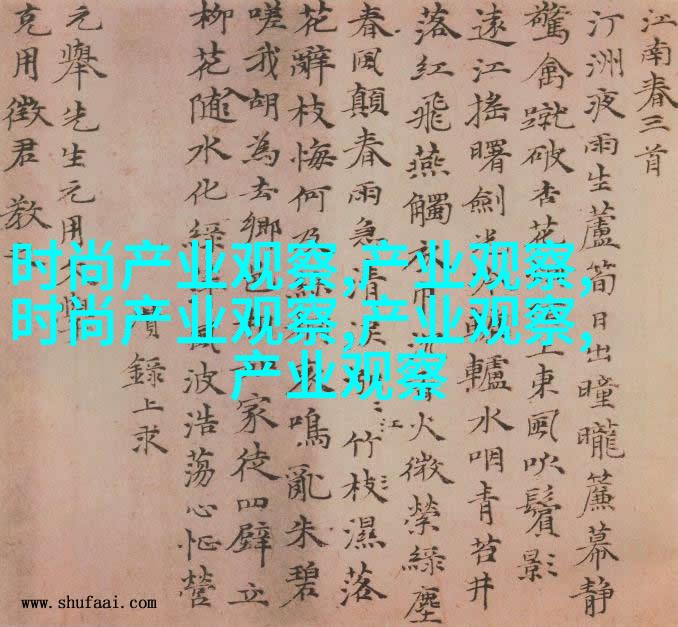 江南春三首
汀洲夜雨生蘆筍日出曈曨簾幕靜
驚禽蹴破杏花上東風吹鬢影
遠江搖曙劍轆轤水咽青苔井
落紅飛燕觸火微縈綠塵
春風顛春雨急清淚江竹枝濕落
花辭枝悔何及哀鳴亂朱碧
嗟我胡為去鄉家徒四壁立
柳花隨水化綠風波浩蕩心怔營
錄上求
元舉先生元用
克用徵君教
时尚产业观察,产业观察,
时尚产业观察,产业观察,
产业观察
www.shufaai.com